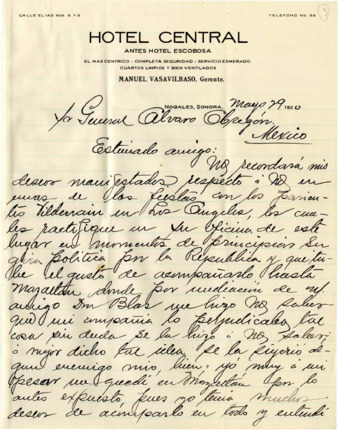 CALLE ELIAS NOS 6 Y 8 TELEFONO No 86
HOTEL CENTRAL
ANTES HOTEL ESCOBOSA
EL MAS CENTRICO - COMPLETA SEGURIDAD - SERVICIO ESMERADO
CUARTOS LIMPIOS Y BIEN VENTILADOS
MANUEL VASAVILBASO, Gerente.
NOGALES, SONORA, Mayo 29 1920
Sr General Alvaro Obregón,
Mexico
Estimado amigo:
No recordará mis
deseos manifestados respecto á Ud en
unas de las fiestas con los
en Los Angeles, los cua-
les ractifiqué en su oficina de este
lugar en momentos de principiar su
gira politica por la Republica y que tu-
be el gusto de acompañarlo hasta
Mazatlán, donde por mediación de mi
amigo Don Blas me hizo Ud saber
que mi compañia lo perjudicaba, tal
cosa sin duda se la hizo á Ud saber,
ó mejor dicho tal idea, se la sugirió al-
gun enemigo mio, bien: yo muy á mi
pesar me quedé en Mazatlan por lo
antes expuesto, pues yo tenia muchos
deseos de acompañarlo en todo y entendí